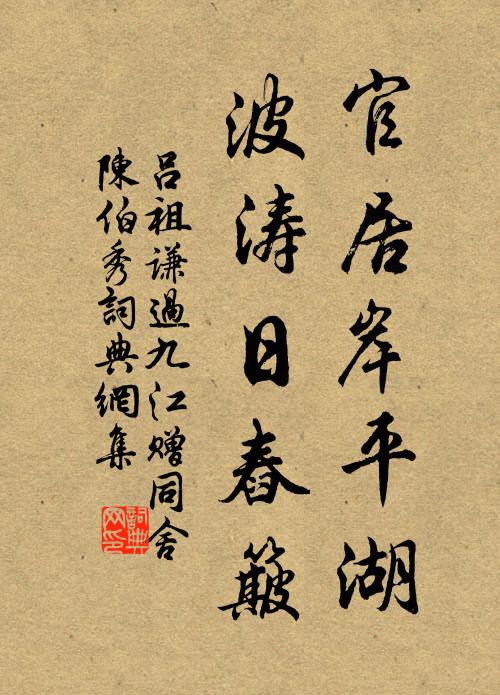 官居岸平湖
波涛日舂簸
呂祖谦過九江赠同舍
陳伯秀詞典網集
詞典
网印